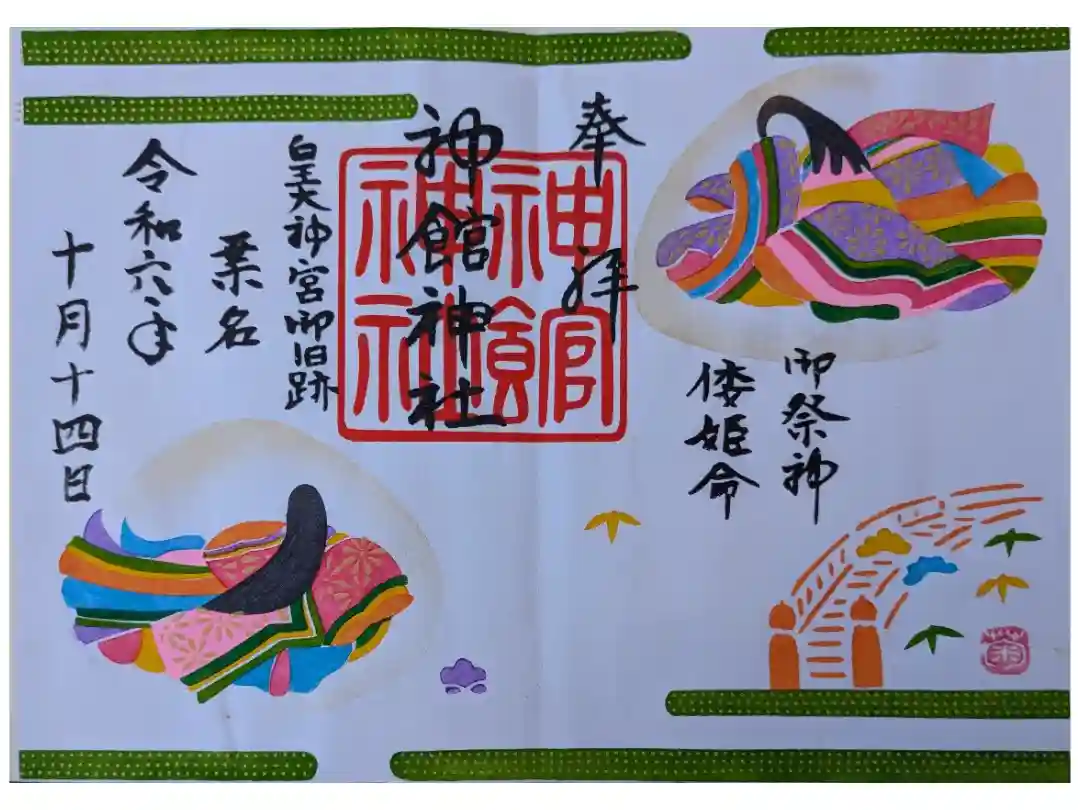 御祭神
倭姫命
奉拝
神館神社
神館神社
皇大神宮御旧跡
桑名
令和六年
十月十四日